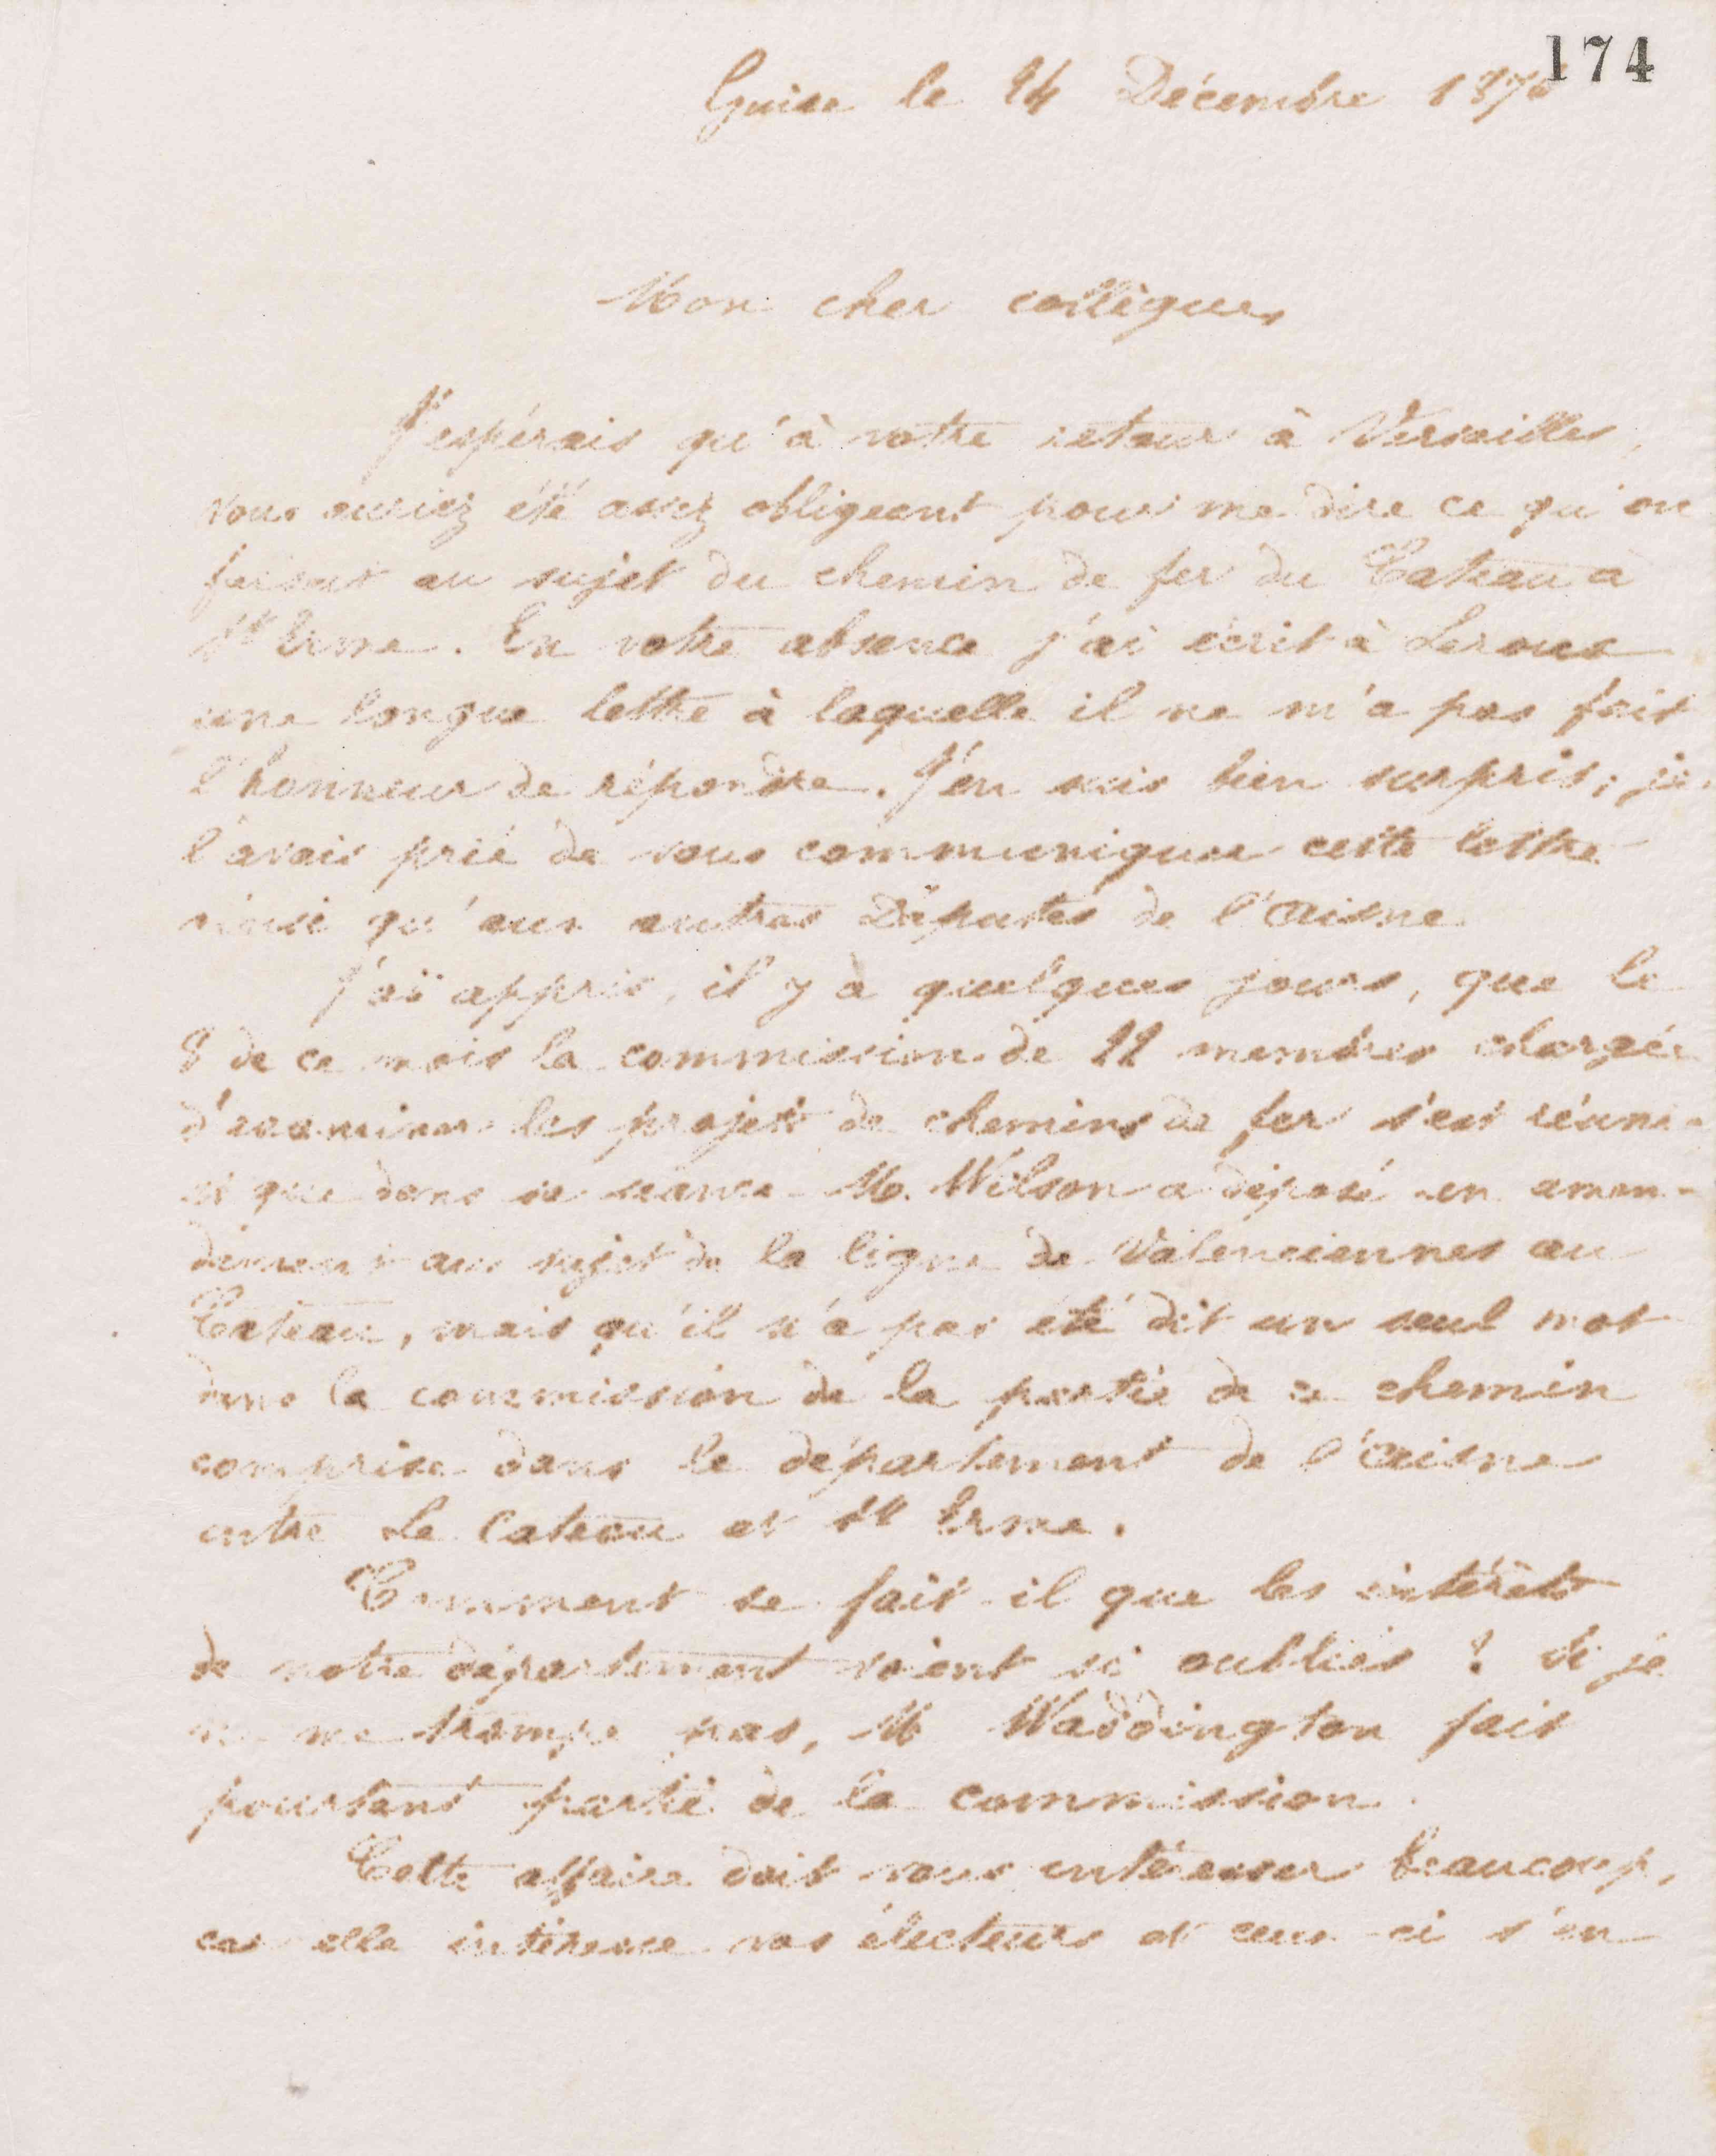 174
Guise le 14 Décembre 187
Mon cher collègue,
J'espérais qu'à votre retour à Versailles,
vous auriez été assez obligeant pour me dire ce qu'on
faisait au sujet du chemin de fer du Cateau a
St Erme. En votre absence j'ai écrit à Leroux
une longue lettre à laquelle il ne m'a pas fait
l'honneur de répondre. J'en suis bien surpris; je
l'avais prié de vous communiquer cette lettre
ainsi qu'aux autres Députés de l'Aisne
J'ai appris, il y a quelques jours, que le
8 de ce mois la commission de 22 membres chargée
d'examiner les projets de chemins de fer s'est réunie
et que dans sa séance M. Wilson a déposé un amen-
dement au sujet de la ligne de Valenciennes au
Cateau, mais qu'il n'a pas été dit un seul mot
dans la commission de la partie de ce chemin
comprise dans le département de l'Aisne
entre Le Cateau et St Erme.
Comment se fait-il que les intérêts
de notre département soient si oubliés ? Si je
ne me trompe pas, M Waddington fait
pourtant partie de la commission.
Cette affaire doit vous intéresser beaucoup,
car elle intéresse vos électeurs et ceux-ci s'en